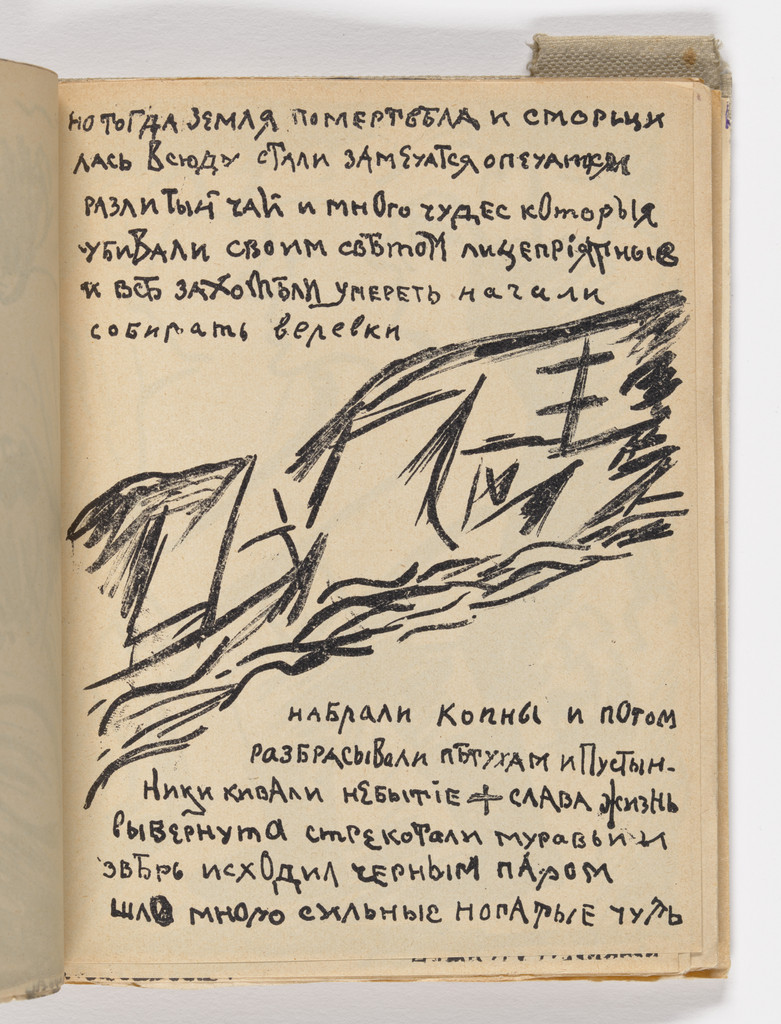 но тогда земля помертвѣла и сморщи
лась всюду стали замечатся опечатки
разлитый чай и много чудес которыя
убивали своим свѣтом лицепріятные
и всѣ захотѣли умереть начали
собирать веревки
набрали копны и потом
разбрасывали пѣтухам и Пустын-
ники кивали небытіе + слава жизнь
вывернута стрекотали муравьи и
звѣрь исходил черным паром
шло много сильные ногатые чуть